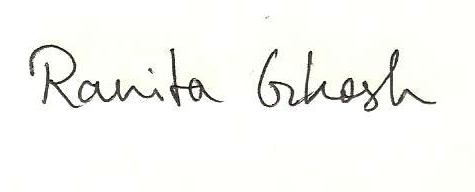 Ranita Ghosh